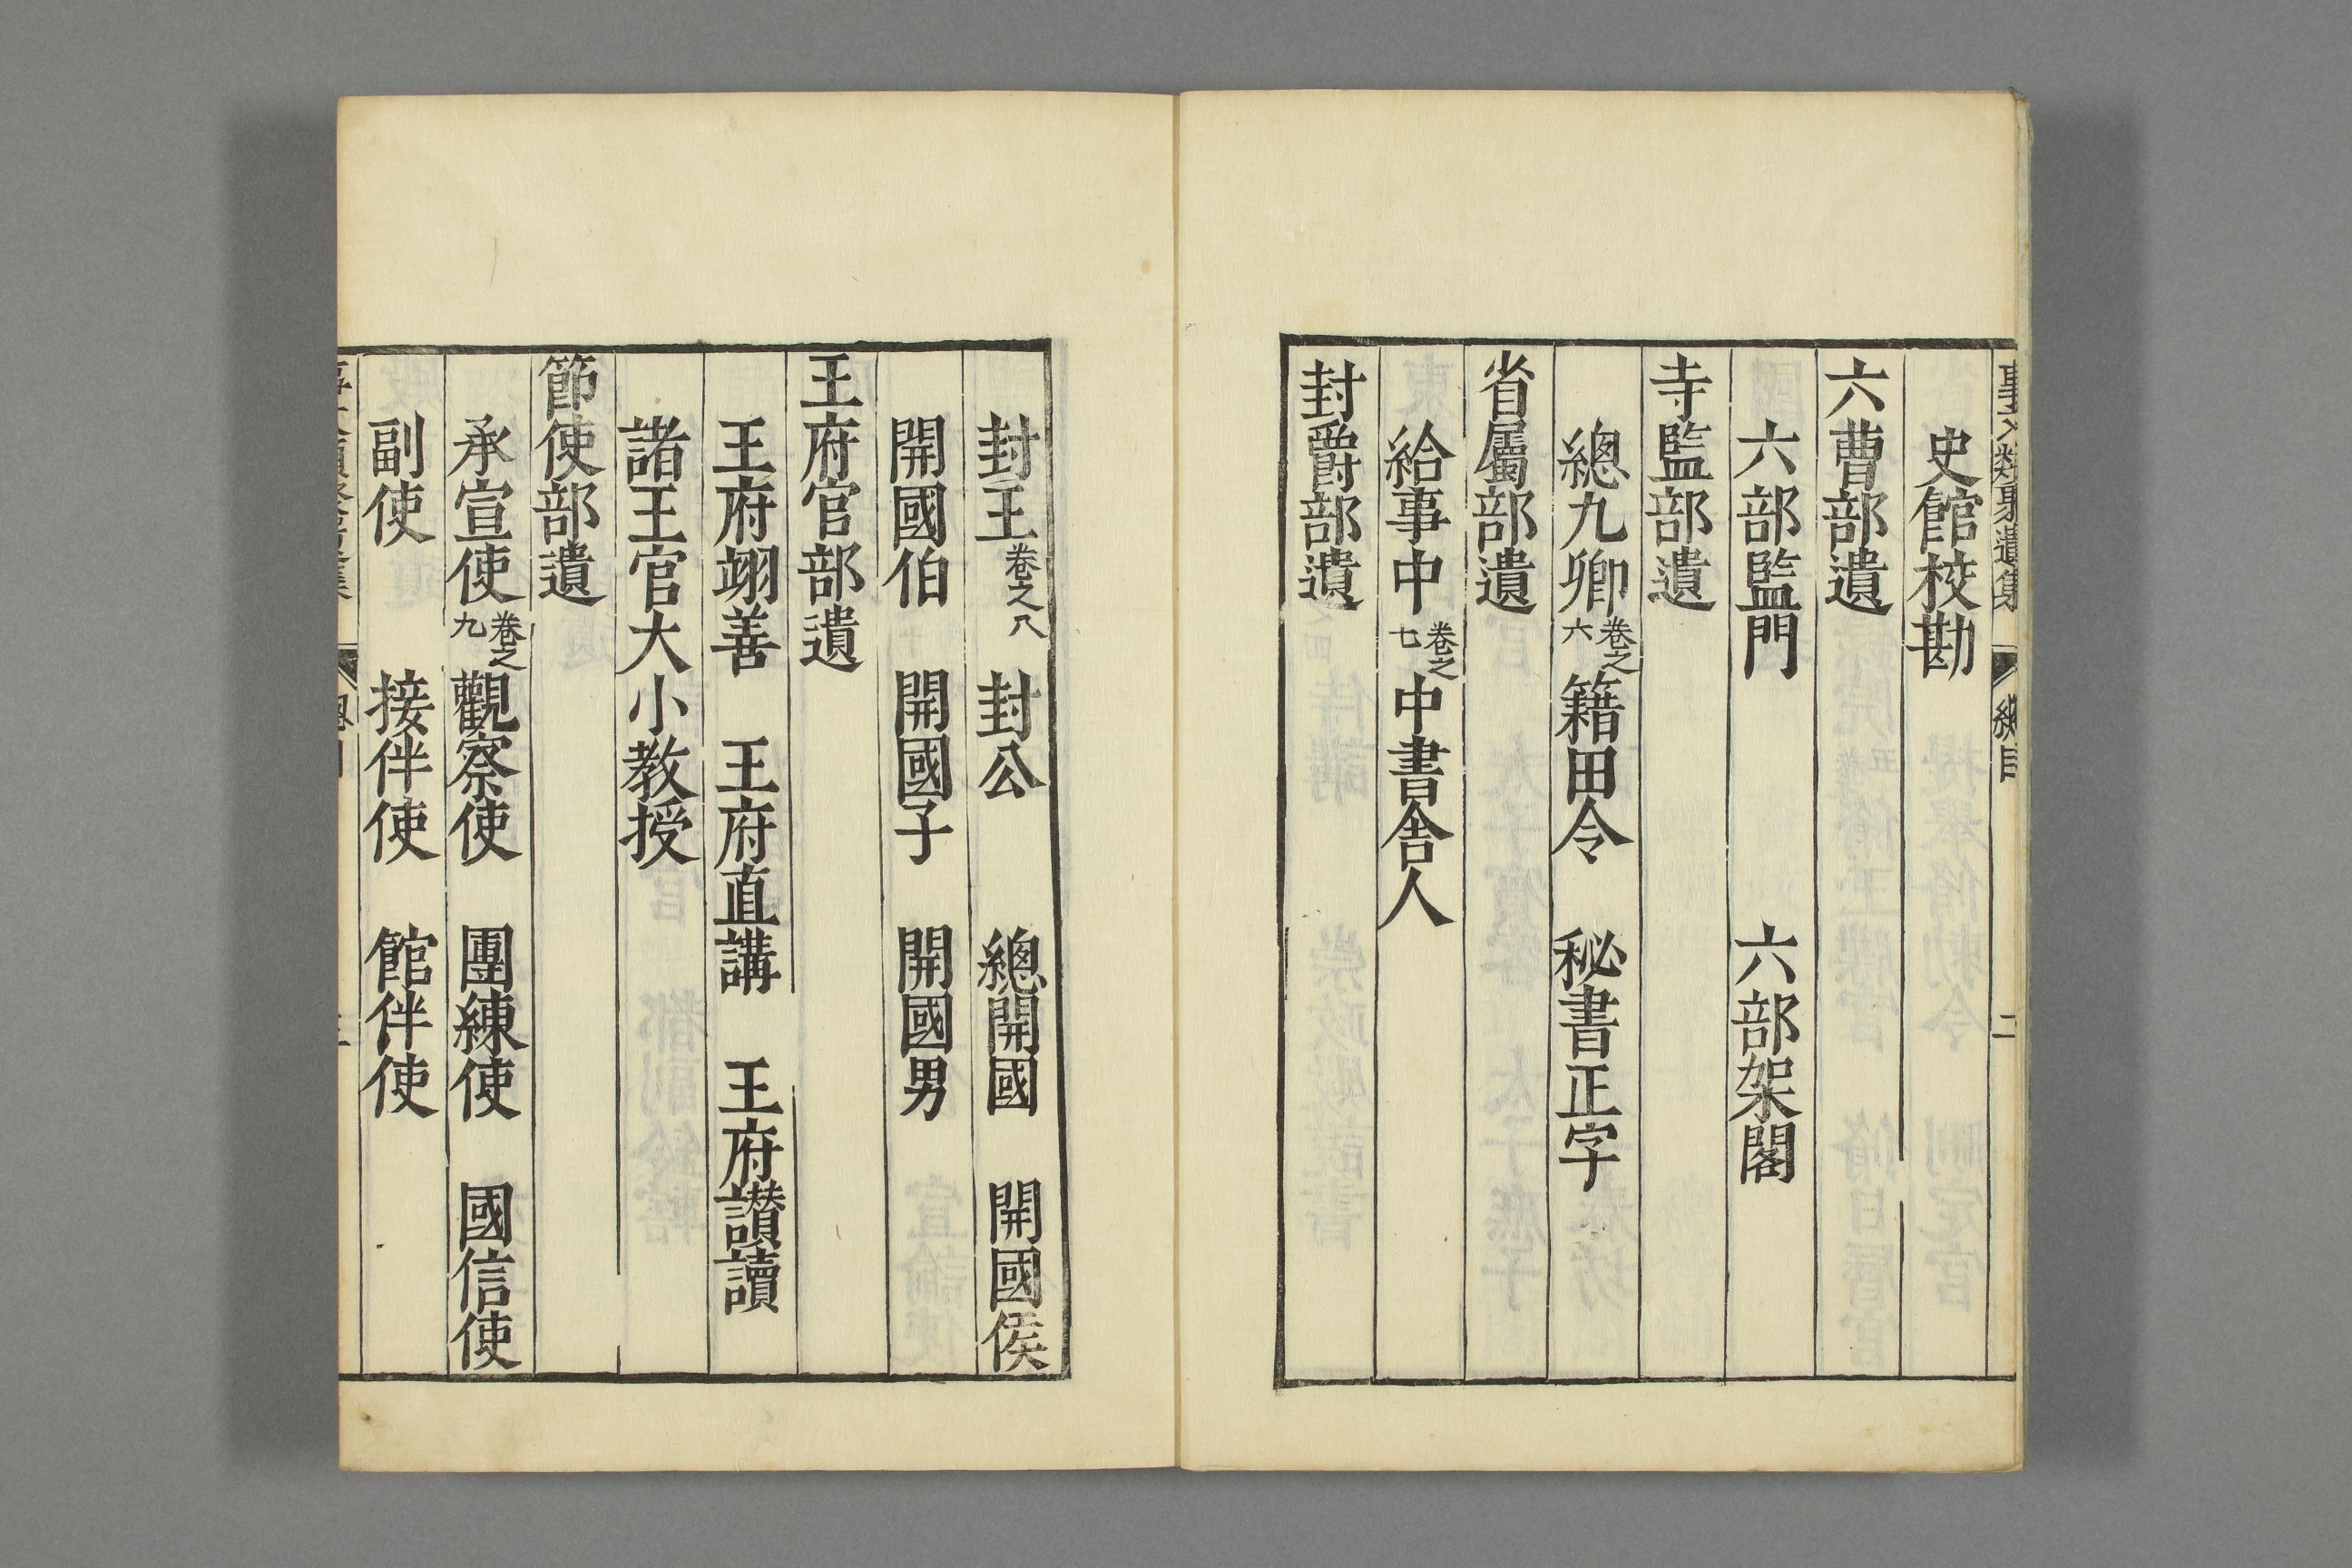 事文類聚遺集 總目 二
史館校勘
六曹部遺
六部監門 六部架閣
寺監部遺
總九卿 卷之六 籍田令 秘書正字
省屬部遺
給事中 卷之七 中書舍人
封爵部遺
封王 卷之八 封公 總開國 開國侯
開國伯 開國子 開國男
王府官部遺
王府翊善 王府直講 王府讃讀
諸王官大小教授
節使部遺
承宣使 卷之九 觀察使 團練使 國信使
副使 接伴使 館伴使